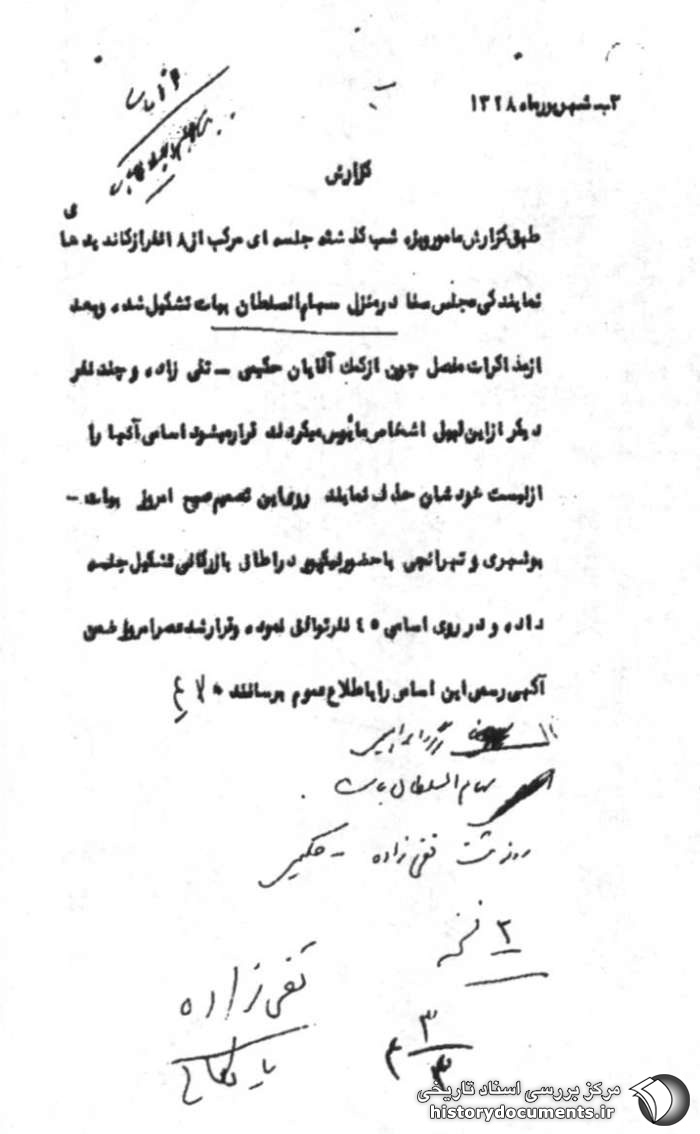 ۳ـ شهریورماه ۱۳۲۸
گزارش
طبق گزارش مامور ویژه شب گذشته جلسه ای مرکب از ۱۸ نفر از کاندیدهای
نمایندگی مجلس سنا در منزل سهام السلطان بیات تشکیل شده و بعد
از مذاکرات مفصل چون از کمک آقایان حکیمی ـ تقی زاده و چند نفر
دیگر از این قبیل اشخاص مأیوس میگردند قرار میشود اسامی آنها را
از لیست خودشان حذف نمایند روی این تصمیم صبح امروز بیات ـ
بوشهری و تهرانچی با حضور نیکپور در اطاق بازرگانی تشکیل جلسه
داده و در روی اسامی ۴۵ نفر توافق نموده و قرار شد عصر امروز ضمن
آگهی رسمی این اسامی را باطلاع عموم برسانند
سهام السلطان بیات
رونوشت تقی زاده ـ حکیمی
۲ نسخه
تقی زاده
بایگانی
۳
۳
مرکز بررسی اسناد تاریخی
historydocuments.ir